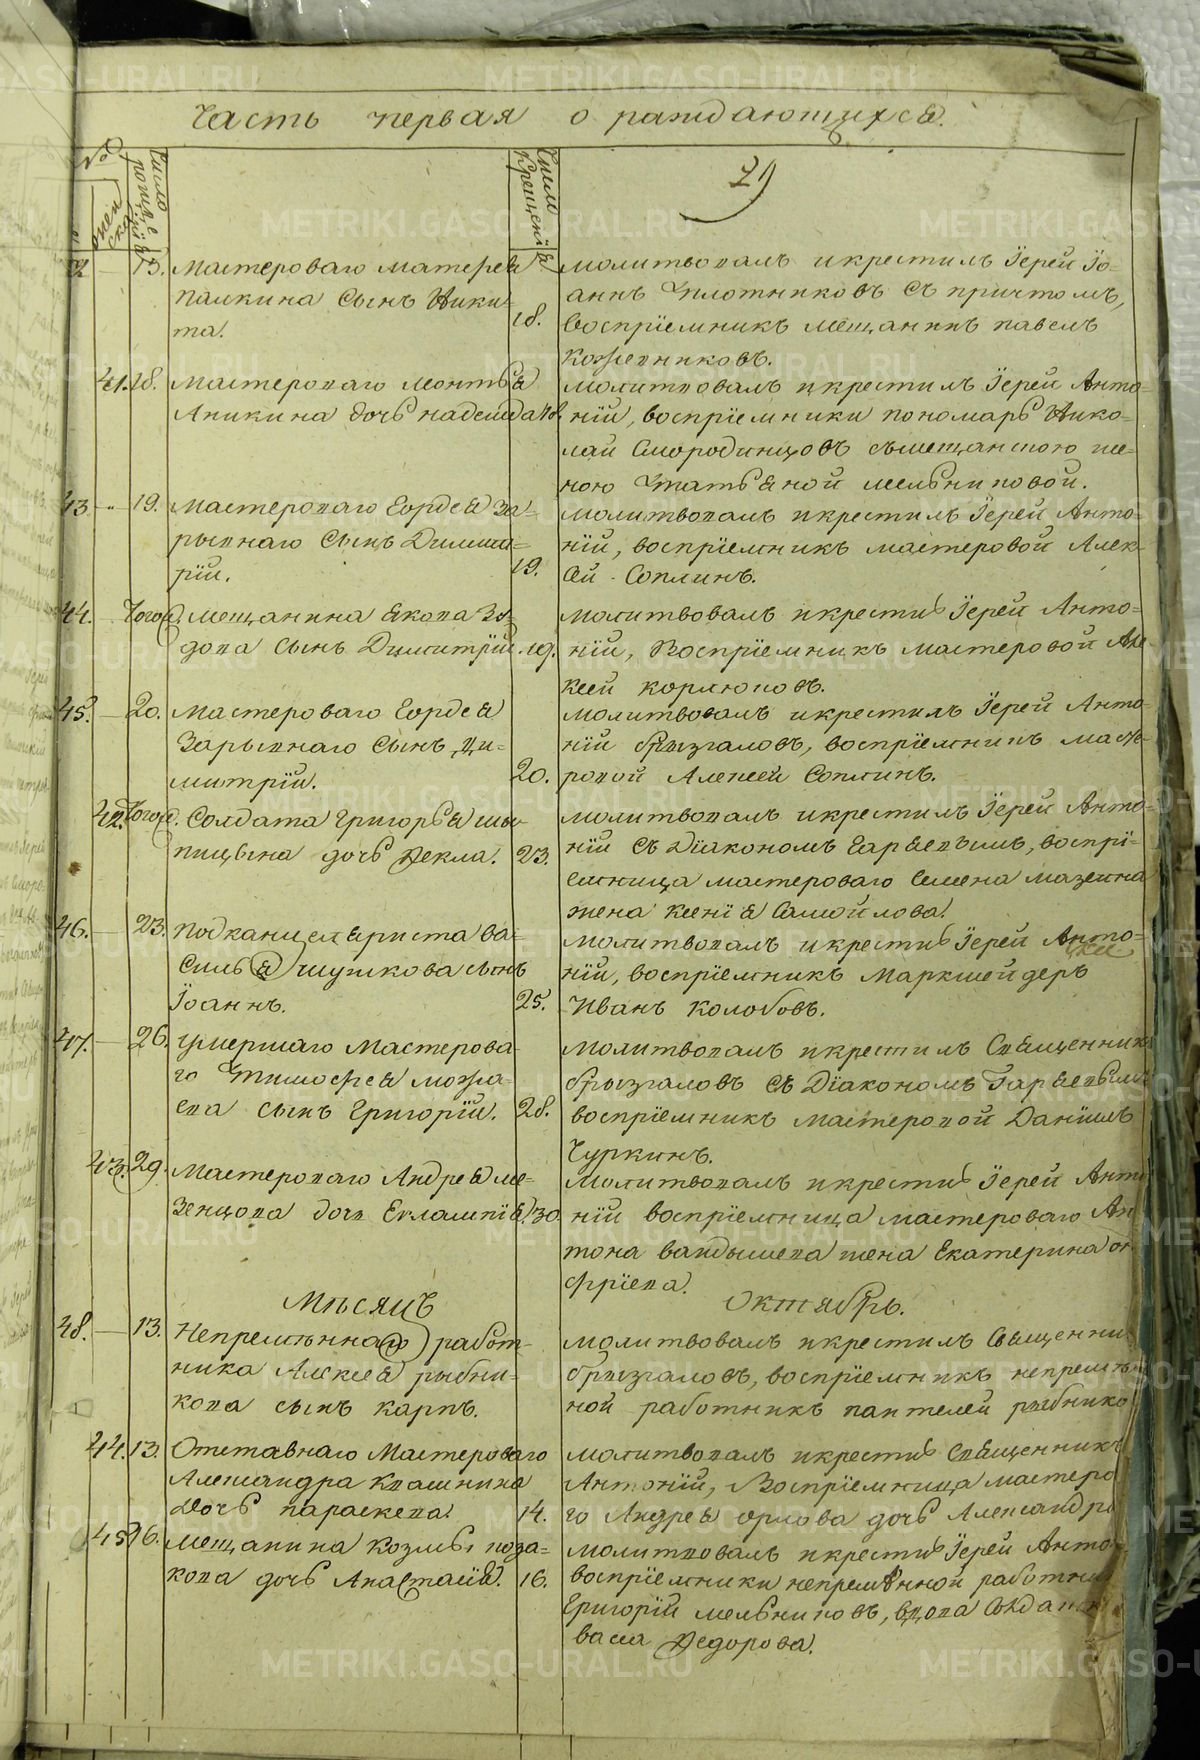 Часть первая о раждающихся.
№
женска
число рожденія
Число Крещенія
79
13. Мастероваго Матвея
Палкина Сынъ Ники-
та. 18.
молитвовалъ и крестилъ Іерей Іо-
аннъ Плотниковъ съ причтомъ,
воспріемникъ мещанинъ павелъ
кожевниковъ.
41. 18. Мастероваго Леонтья
Аникина дочь надежда 18.
молитвовалъ и крестилъ Іерей Анто-
ній, воспріемники пономарь Нико-
лай Смородинцовъ съ мещанскою же-
ною Татьяной мельниковой.
43. " 19. Мастероваго Гордея За-
рывнаго Сынъ Димит-
рій. 19.
молитвовалъ и крестилъ Іерей Анто-
ній, воспріемникъ мастеровой Алек-
сей Соплинъ.
44. Того д. мещанина Якова Зы-
дова Сынъ Димитрій. 19.
молитвовалъ и крестилъ Іерей Анто-
ній, Воспріемникъ мастеровой Але-
ксей корлюковъ.
45. 20. Мастероваго Гордея
Зарывнаго Сынъ Ди-
митрій. 20.
молитвовалъ и крестилъ Іерей Анто-
ній брызгаловъ, воспріемникъ масте-
ровой Алексей Соплинъ.
42. Того д. Солдата Григорья шы-
пицына дочь Фекла. 23.
молитвовалъ и крестилъ Іерей Анто-
ній съ Діакономъ Гаряевымъ, воспрі-
емница мастероваго Семена мазеина
жена ксенія Самойлова.
46. 23. подканцеляриста Ва-
силья шушкова сынъ
Іоаннъ. 25.
молитвовалъ и крестилъ Іерей Анто-
ній, воспріемникъ Маркшейдеръ
Иванъ Колобовъ.
47. 26. умершаго Мастерова-
го Тимофея можа-
ева сынъ Григорій. 28.
молитвовалъ и крестилъ Священникъ
брызгаловъ съ Діакономъ Гаряевымъ
воспріемникъ мастеровой Даніилъ
Чуркинъ.
43. 29. Мастероваго Андрея ме-
зенцова дочь Евлампія. 30.
молитвовалъ и крестилъ Іерей Анто-
ній воспріемница мастероваго Ан-
тона вандышева жена Екатерина он-
фріева.
Мѣсяцъ Октябрь.
48. 13. Непремѣннаго работ-
ника Алексея рыбни-
кова сынъ карпъ.
молитвовалъ и крестилъ Священни
брызгаловъ, воспріемникъ непремѣн-
ной работникъ пантелей рыбнико
44. 13. Отставнаго Мастероваго
Александра Квашнина
дочь параскева. 14.
молитвовалъ и крестилъ Священникъ
Антоній, Воспріемница мастеро
го Андрея орлова дочь Александра
45. 16. мещанина Козмы поза-
кова дочь Анастасія. 16.
молитвовалъ и крестилъ Іерей Анто
воспріемники непремѣнной работник
Григорій мельниковъ, вдова
Федорова.
METRIKI.GASO-URAL.RU